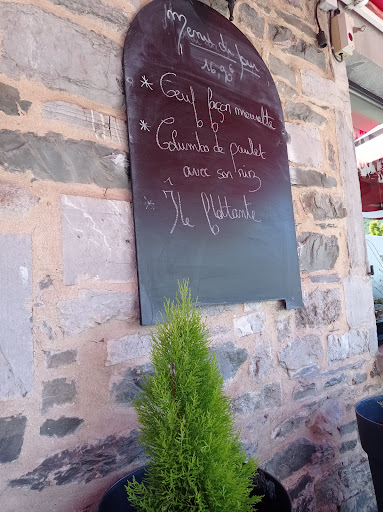 Menu du jour
16,90€
* Oeuf façon meurette
* Colombo de poulet
avec son riz
* Ile flottante